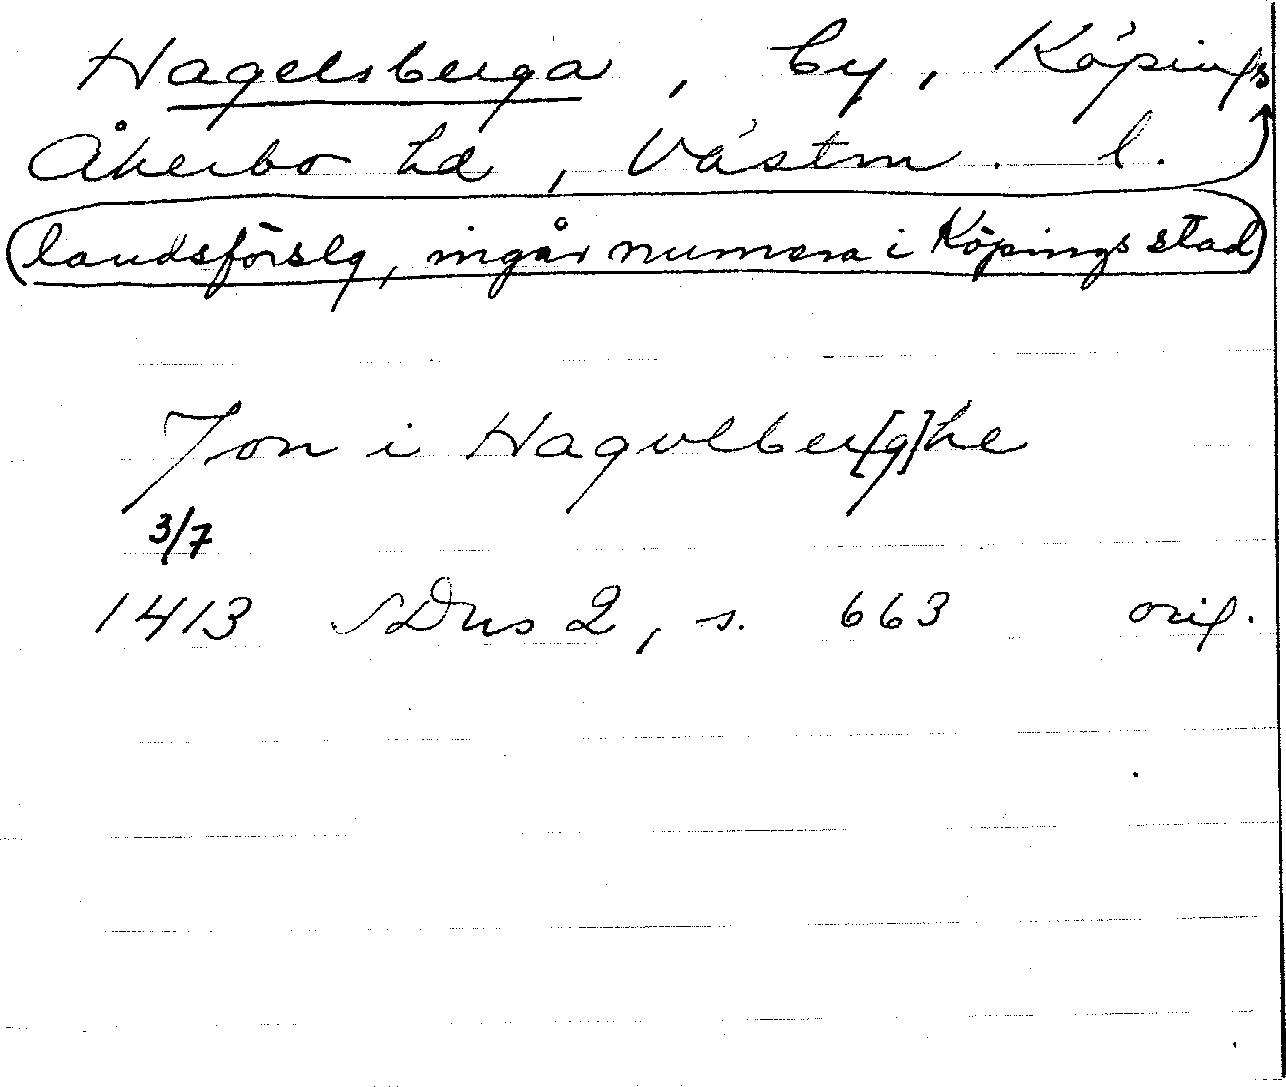 Hagelsberga, by, Köpings
Åkerbo hd, Västm. l.
(landsförslg, ingår numera i Köpings stad)
Jon i Hagulber[g]he
3/7
1413 SDns 2, s. 663 orig.